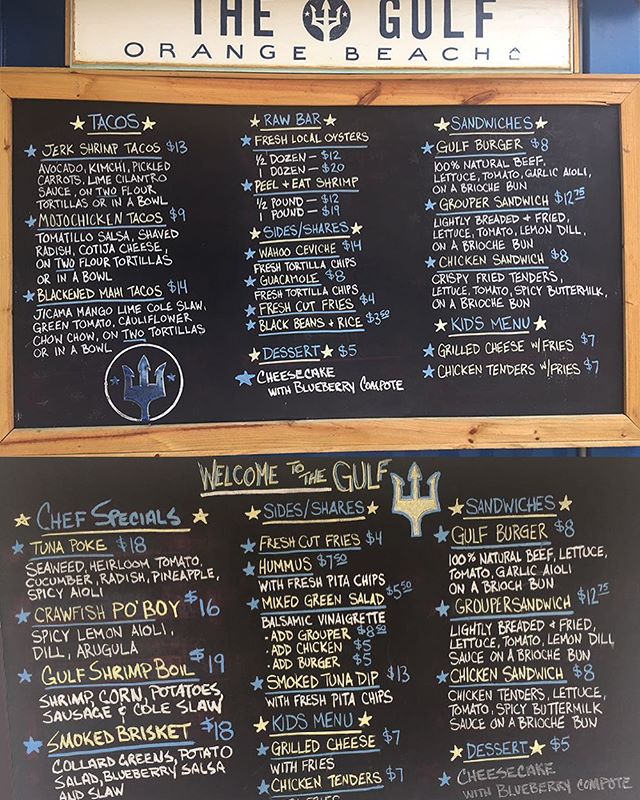 THE GULF
ORANGE BEACH
TACOS
JERK SHRIMP TACOS $13
AVOCADO, KIMCHI, PICKLED
CARROTS, LIME CILANTRO
SAUCE, ON TWO FLOUR
TORTILLAS OR IN A BOWL
MOJO CHICKEN TACOS $9
TOMATILLO SALSA, SHAVED
RADISH, COTIJA CHEESE,
ON TWO FLOUR TORTILLAS
OR IN A BOWL
BLACKENED MAHI TACOS $14
JICAMA MANGO LIME COLE SLAW,
GREEN TOMATO, CAULIFLOWER
CHOW CHOW, ON TWO TORTILLAS
OR IN A BOWL
RAW BAR
FRESH LOCAL OYSTERS
1/2 DOZEN - $12
1 DOZEN - $20
PEEL + EAT SHRIMP
1/2 POUND - $12
1 POUND - $19
SIDES/SHARES
WAHOO CEVICHE $14
FRESH TORTILLA CHIPS
GUACAMOLE $8
FRESH TORTILLA CHIPS
FRESH CUT FRIES $4
BLACK BEANS + RICE $3.50
DESSERT $5
CHEESECAKE
WITH BLUEBERRY COMPOTE
SANDWICHES
GULF BURGER $8
100% NATURAL BEEF,
LETTUCE, TOMATO, GARLIC AIOLI,
ON A BRIOCHE BUN
GROUPER SANDWICH $12.75
LIGHTLY BREADED & FRIED,
LETTUCE, TOMATO, LEMON DILL,
ON A BRIOCHE BUN
CHICKEN SANDWICH $8
CRISPY FRIED TENDERS,
LETTUCE, TOMATO, SPICY BUTTERMILK,
ON A BRIOCHE BUN
KID'S MENU
GRILLED CHEESE W/FRIES $7
CHICKEN TENDERS W/FRIES $7
WELCOME TO THE GULF
CHEF SPECIALS
TUNA POKE $18
SEAWEED, HEIRLOOM TOMATO,
CUCUMBER, RADISH, PINEAPPLE,
SPICY AIOLI
CRAWFISH PO'BOY $16
SPICY LEMON AIOLI,
DILL, ARUGULA
GULF SHRIMP BOIL $19
SHRIMP, CORN, POTATOES,
SAUSAGE & COLE SLAW
SMOKED BRISKET $18
COLLARD GREENS, POTATO
SALAD, BLUEBERRY SALSA
AND SLAW
SIDES/SHARES
FRESH CUT FRIES $4
HUMMUS $7.50
WITH FRESH PITA CHIPS
MIXED GREEN SALAD $5.50
BALSAMIC VINAIGRETTE
• ADD GROUPER $8.50
• ADD CHICKEN $5
• ADD BURGER $5
SMOKED TUNA DIP $13
WITH FRESH PITA CHIPS
KIDS MENU
GRILLED CHEESE $7
WITH FRIES
CHICKEN TENDERS $7
SANDWICHES
GULF BURGER $8
100% NATURAL BEEF, LETTUCE,
TOMATO, GARLIC AIOLI
ON A BRIOCH BUN
GROUPER SANDWICH $12.75
LIGHTLY BREADED & FRIED,
LETTUCE, TOMATO, LEMON DILL
SAUCE ON A BRIOCHE BUN
CHICKEN SANDWICH $8
CHICKEN TENDERS, LETTUCE,
TOMATO, SPICY BUTTERMILK
SAUCE ON A BRIOCHE BUN
DESSERT $5
CHEESECAKE
WITH BLUEBERRY COMPOTE